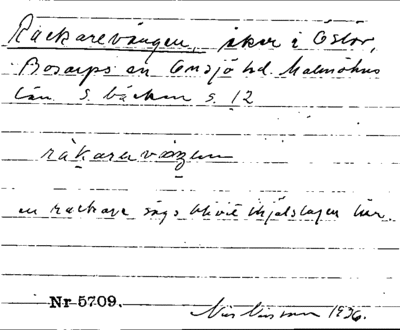 Räckarevången, åker i Östor,
Bosarps sn Onsjö hd. Malmöhus
län S. bäcken s. 12
råkarevången
en rackare sägs blivit ihjälslagen här.
Nr 5709.
Nils Nilsson 1936.